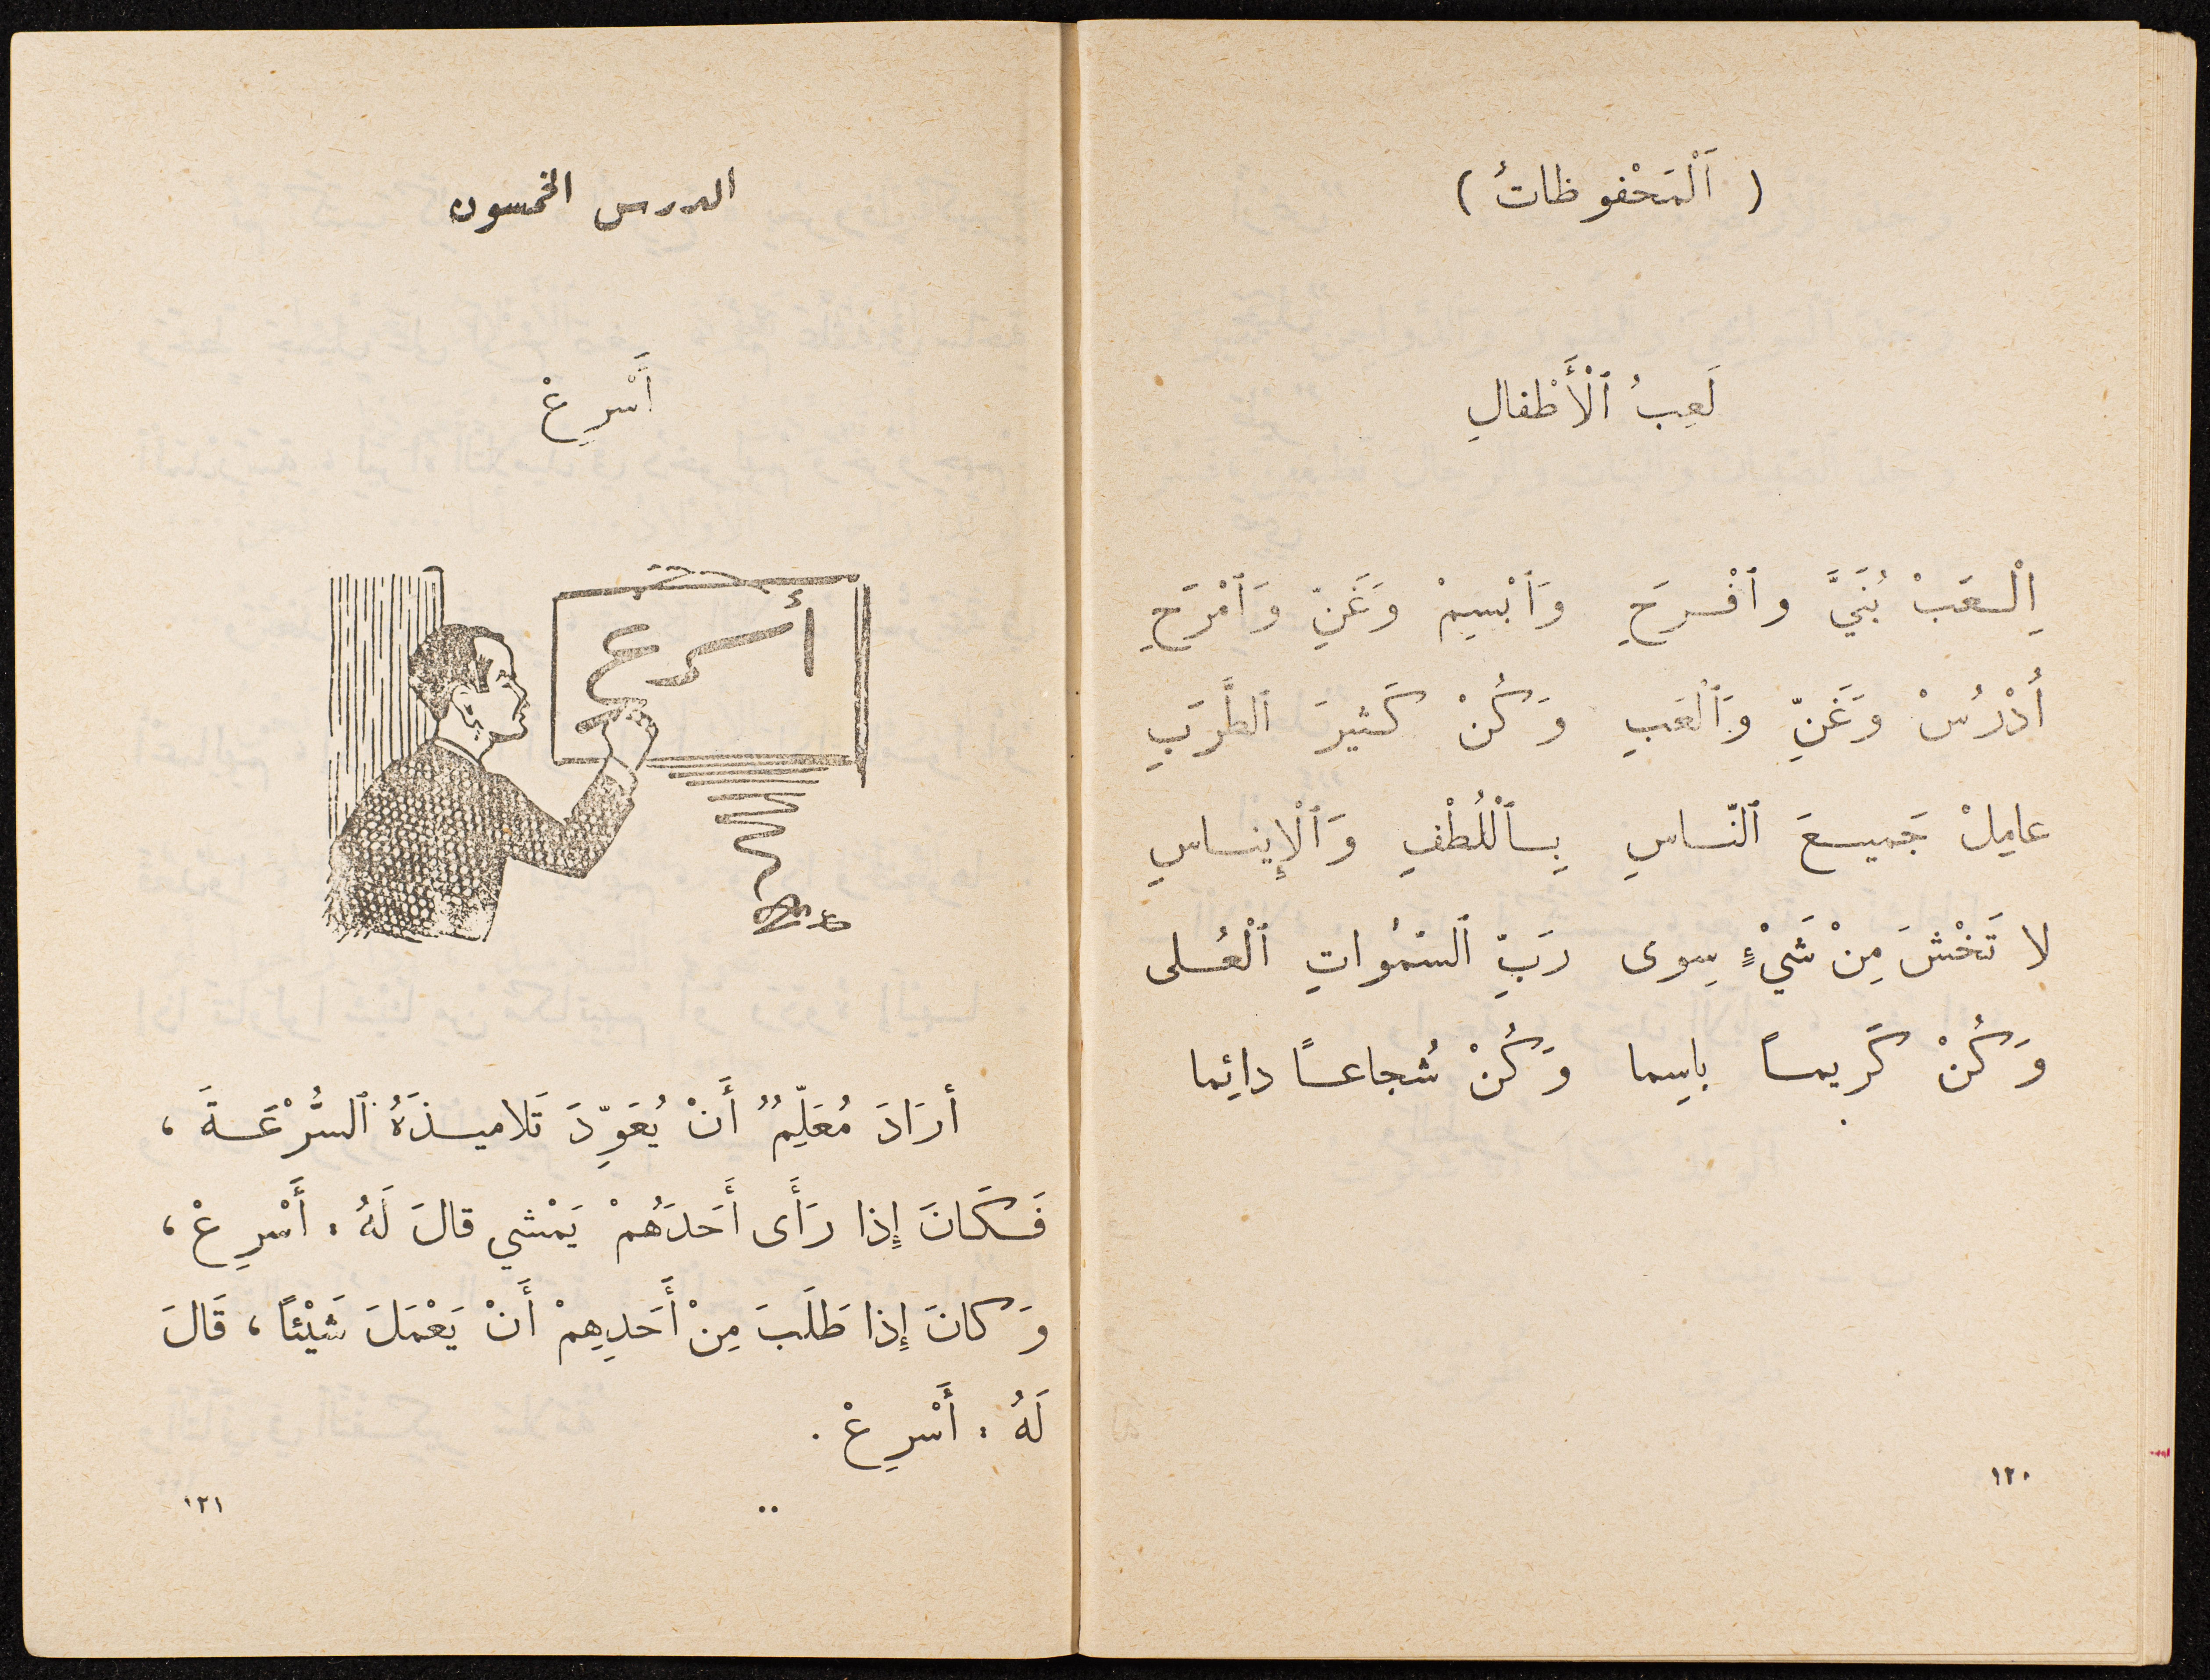 ( اَلْمَحْفوظاتُ )
لَعِبُ ٱلْأَطْفالِ
اِلْعَبْ بُنَيَّ وٱفْرَحِ وَٱبْسِمْ وَغَنِّ وَٱمْرَحِ
أُدْرُسْ وَغَنِّ وَٱلْعَبِ وَكُنْ كَثيرَ ٱلطَّرَبِ
عامِلْ جَميعَ ٱلنّاسِ بِٱللُّطْفِ وَٱلْإِيناسِ
لا تَخْشَ مِنْ شَيْءٍ سِوى رَبِّ ٱلسَّمٰواتِ ٱلْعُلى
وَكُنْ كَريماً باسِما وَكُنْ شُجاعاً دائِما
١٢٠
الدرس الخمسون
أَسْرِعْ
أسرع
أرَادَ مُعَلِّمٌ أَنْ يُعَوِّدَ تَلاميذَهُ ٱلسُّرْعَةَ ،
فَكَانَ إِذا رَأَى أَحَدَهُمْ يَمْشي قالَ لَهُ : أَسْرِعْ ،
وَكانَ إِذا طَلَبَ مِنْ أَحَدِهِمْ أَنْ يَعْمَلَ شَيْئاً ، قَالَ
لَهُ : أَسْرِعْ .
١٢١